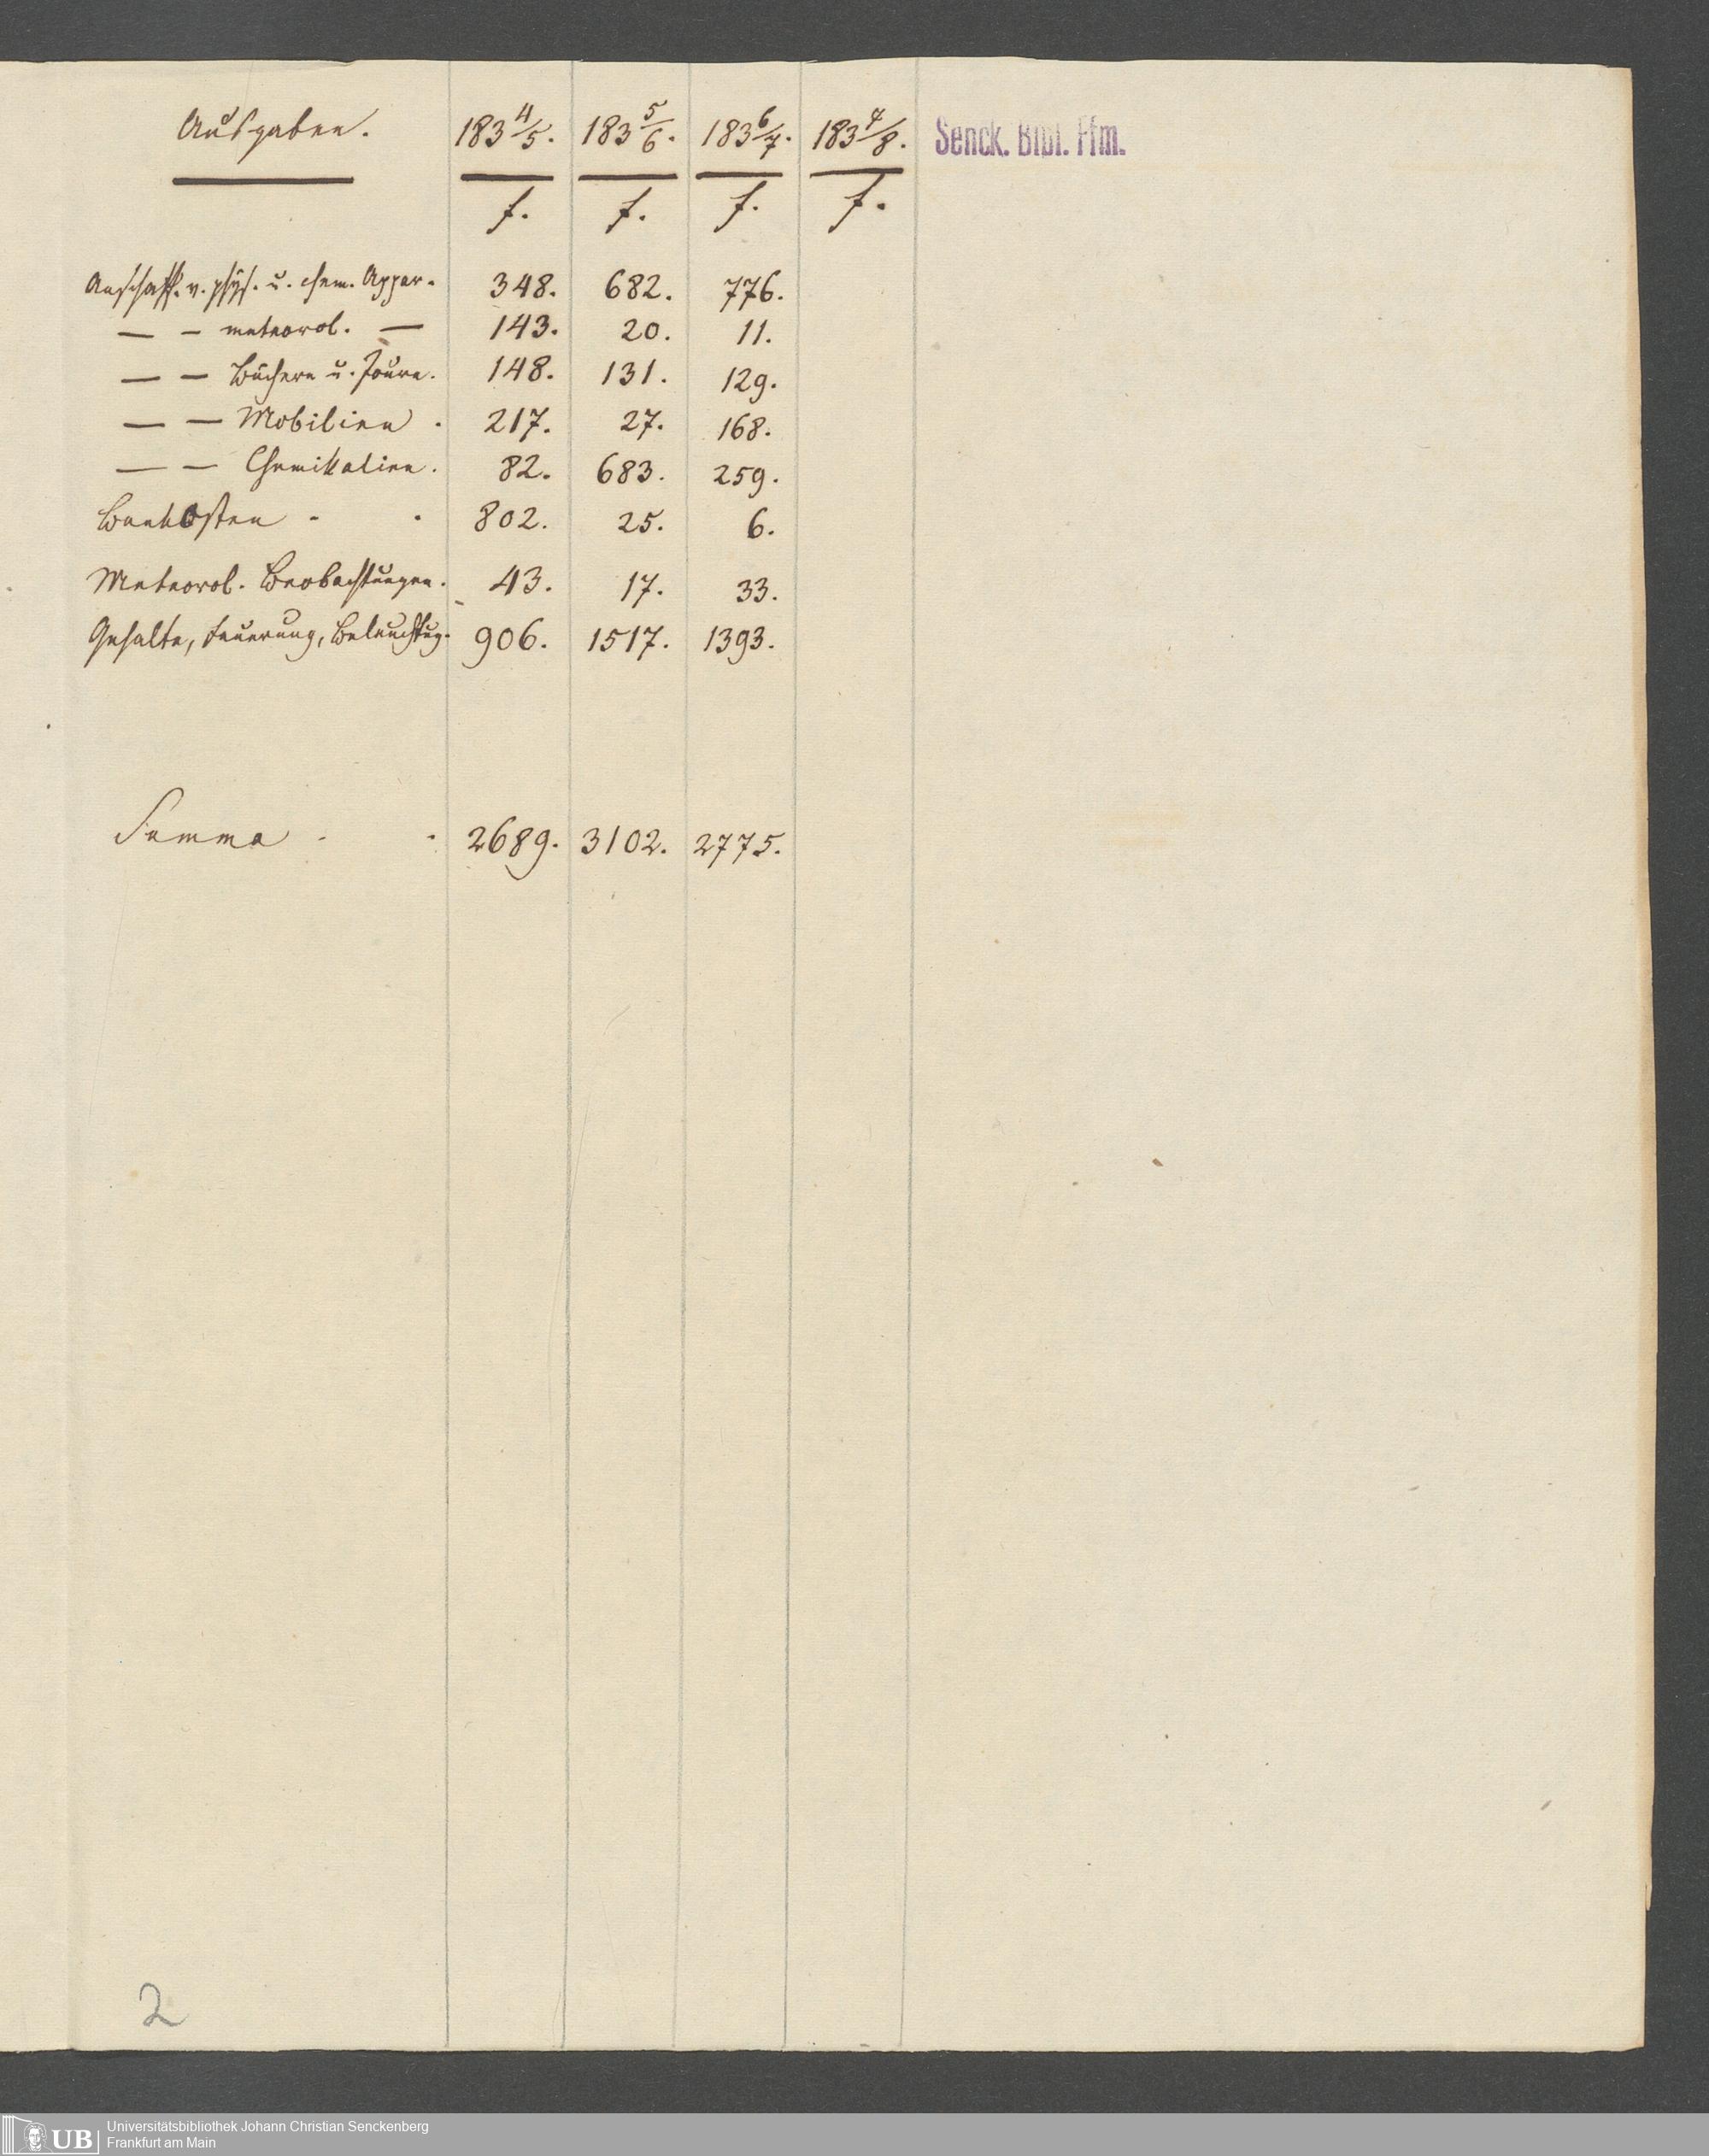 Ausgaben. 183 4/5. 183 5/6. 183 6/7. 183 7/8. Senck. Bibl. Ffm.
f. f. f. f.
Anschaff. v. phys. u. chem. Appar. 348. 682. 776.
— — meteorol. — 143. 20. 11.
— — Büchern u. Journ. 148. 131. 129.
— — Mobilien . 217. 27. 168.
— — Chemikalien. 82. 683. 259.
Baukosten - . 802. 25. 6.
Meteorol. Beobachtungen. 43. 17. 33.
Gehalte, Feuerung, Beleuchtug. 906. 1517. 1393.
Summa - . 2689. 3102. 2775.
2
UB Universitätsbibliothek Johann Christian Senckenberg
Frankfurt am Main